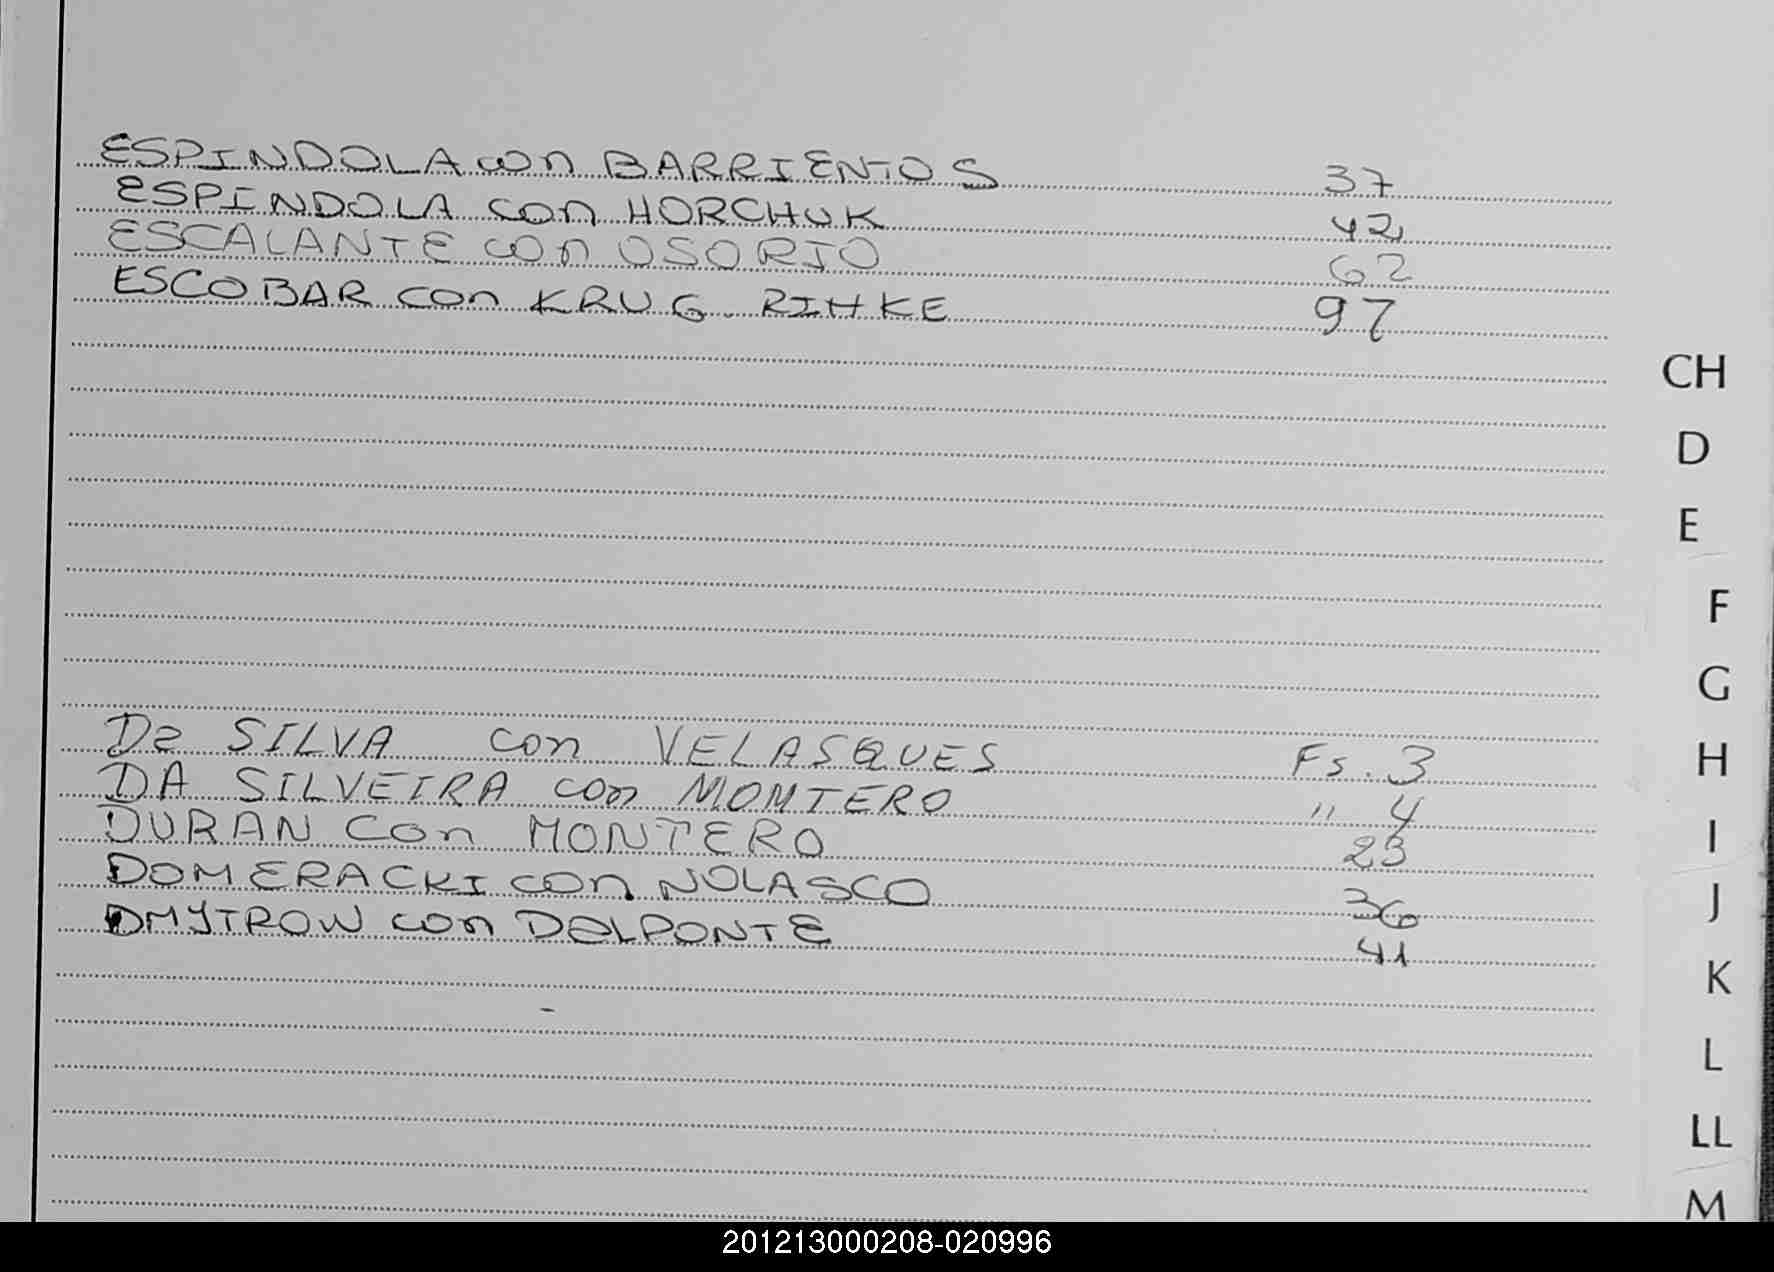 ESPINDOLA con BARRIENTOS 37
ESPINDOLA con HORCHUK 42
ESCALANTE con OSORIO 62
ESCOBAR con KRUG. RIHKE 97
CH
D
E
F
G
De SILVA con VELASQUES Fs. 3
H
DA SILVEIRA con MONTERO " 4
I
DURAN Con MONTERO 23
DOMERACKI con NOLASCO 36
J
DMYTROW con DELPONTE 41
K
L
LL
M
201213000208-020996